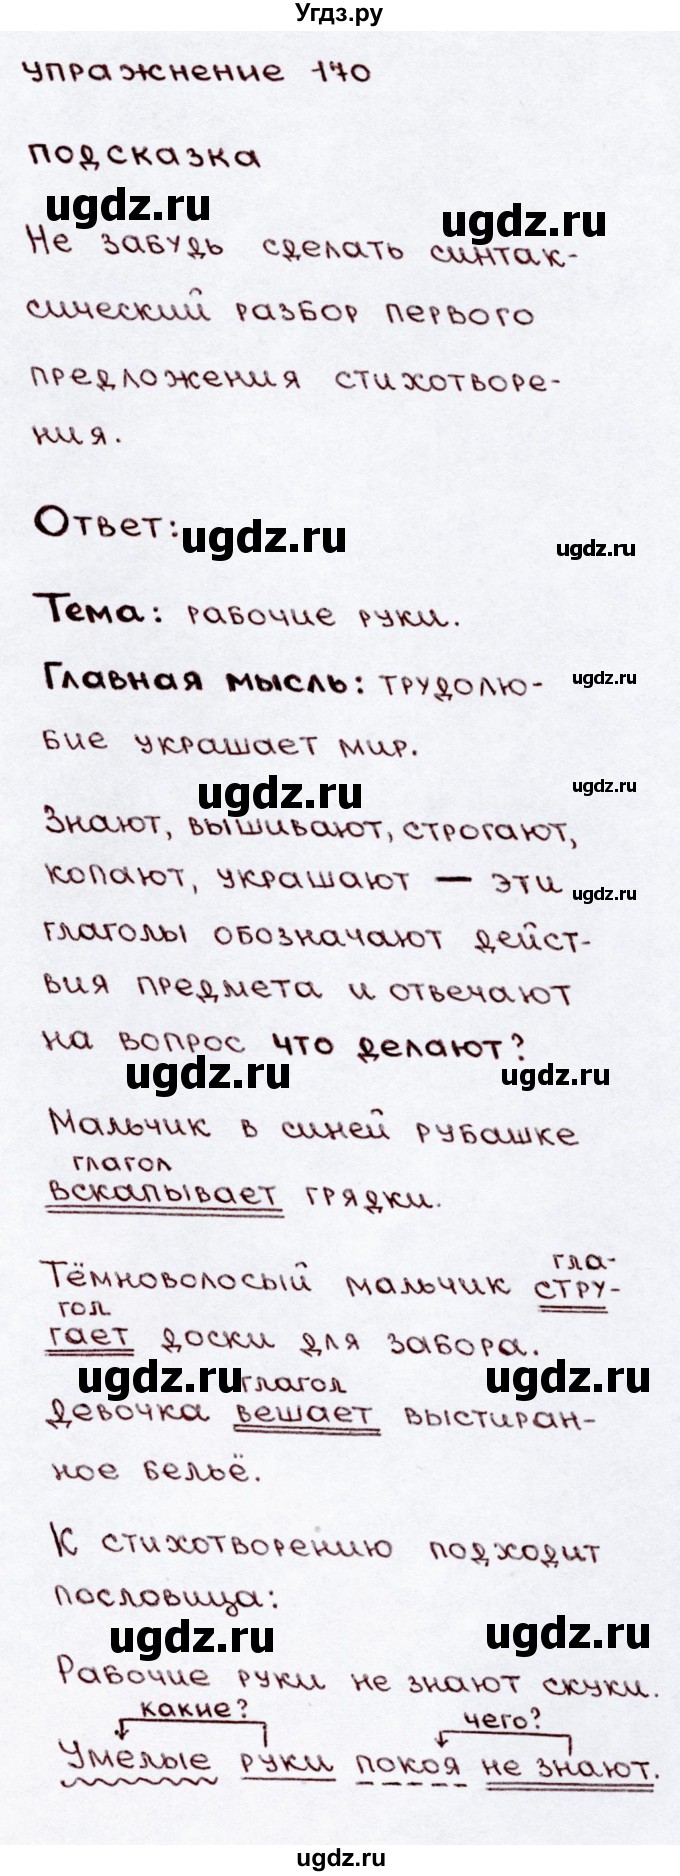 Угдз.ру
упражнение 170
подсказка
ugdz.ru
ugdz.ru
Не забудь сделать синтак-
сический разбор первого
предложения стихотворе-
ния.
Ответ:
ugdz.ru
ugdz.ru
Тема: рабочие руки.
Главная мысль: трудолю-
ugdz.ru
бие украшает мир.
ugdz.ru
ugdz.ru
Знают, вышивают, строгают,
копают, украшают — эти
ugdz.ru
глаголы обозначают дейст-
вия предмета и отвечают
на вопрос что делают?
ugdz.ru
ugdz.ru
Мальчик в синей рубашке
глагол
вскапывает грядки.
гла-
Тёмноволосый мальчик стру-
гол
гает доски для забора.
ugdz.ru
ugdz.ru
глагол
девочка вешает выстиран-
ное бельё.
К стихотворению подходит
пословица:
ugdz.ru
ugdz.ru
Рабочие руки не знают скуки.
какие?
чего?
Умелые руки покоя не знают.
ugdz.ru